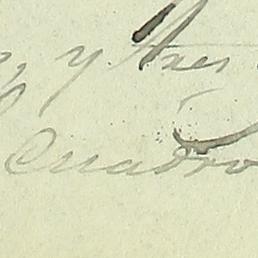 y tres
Cuadro